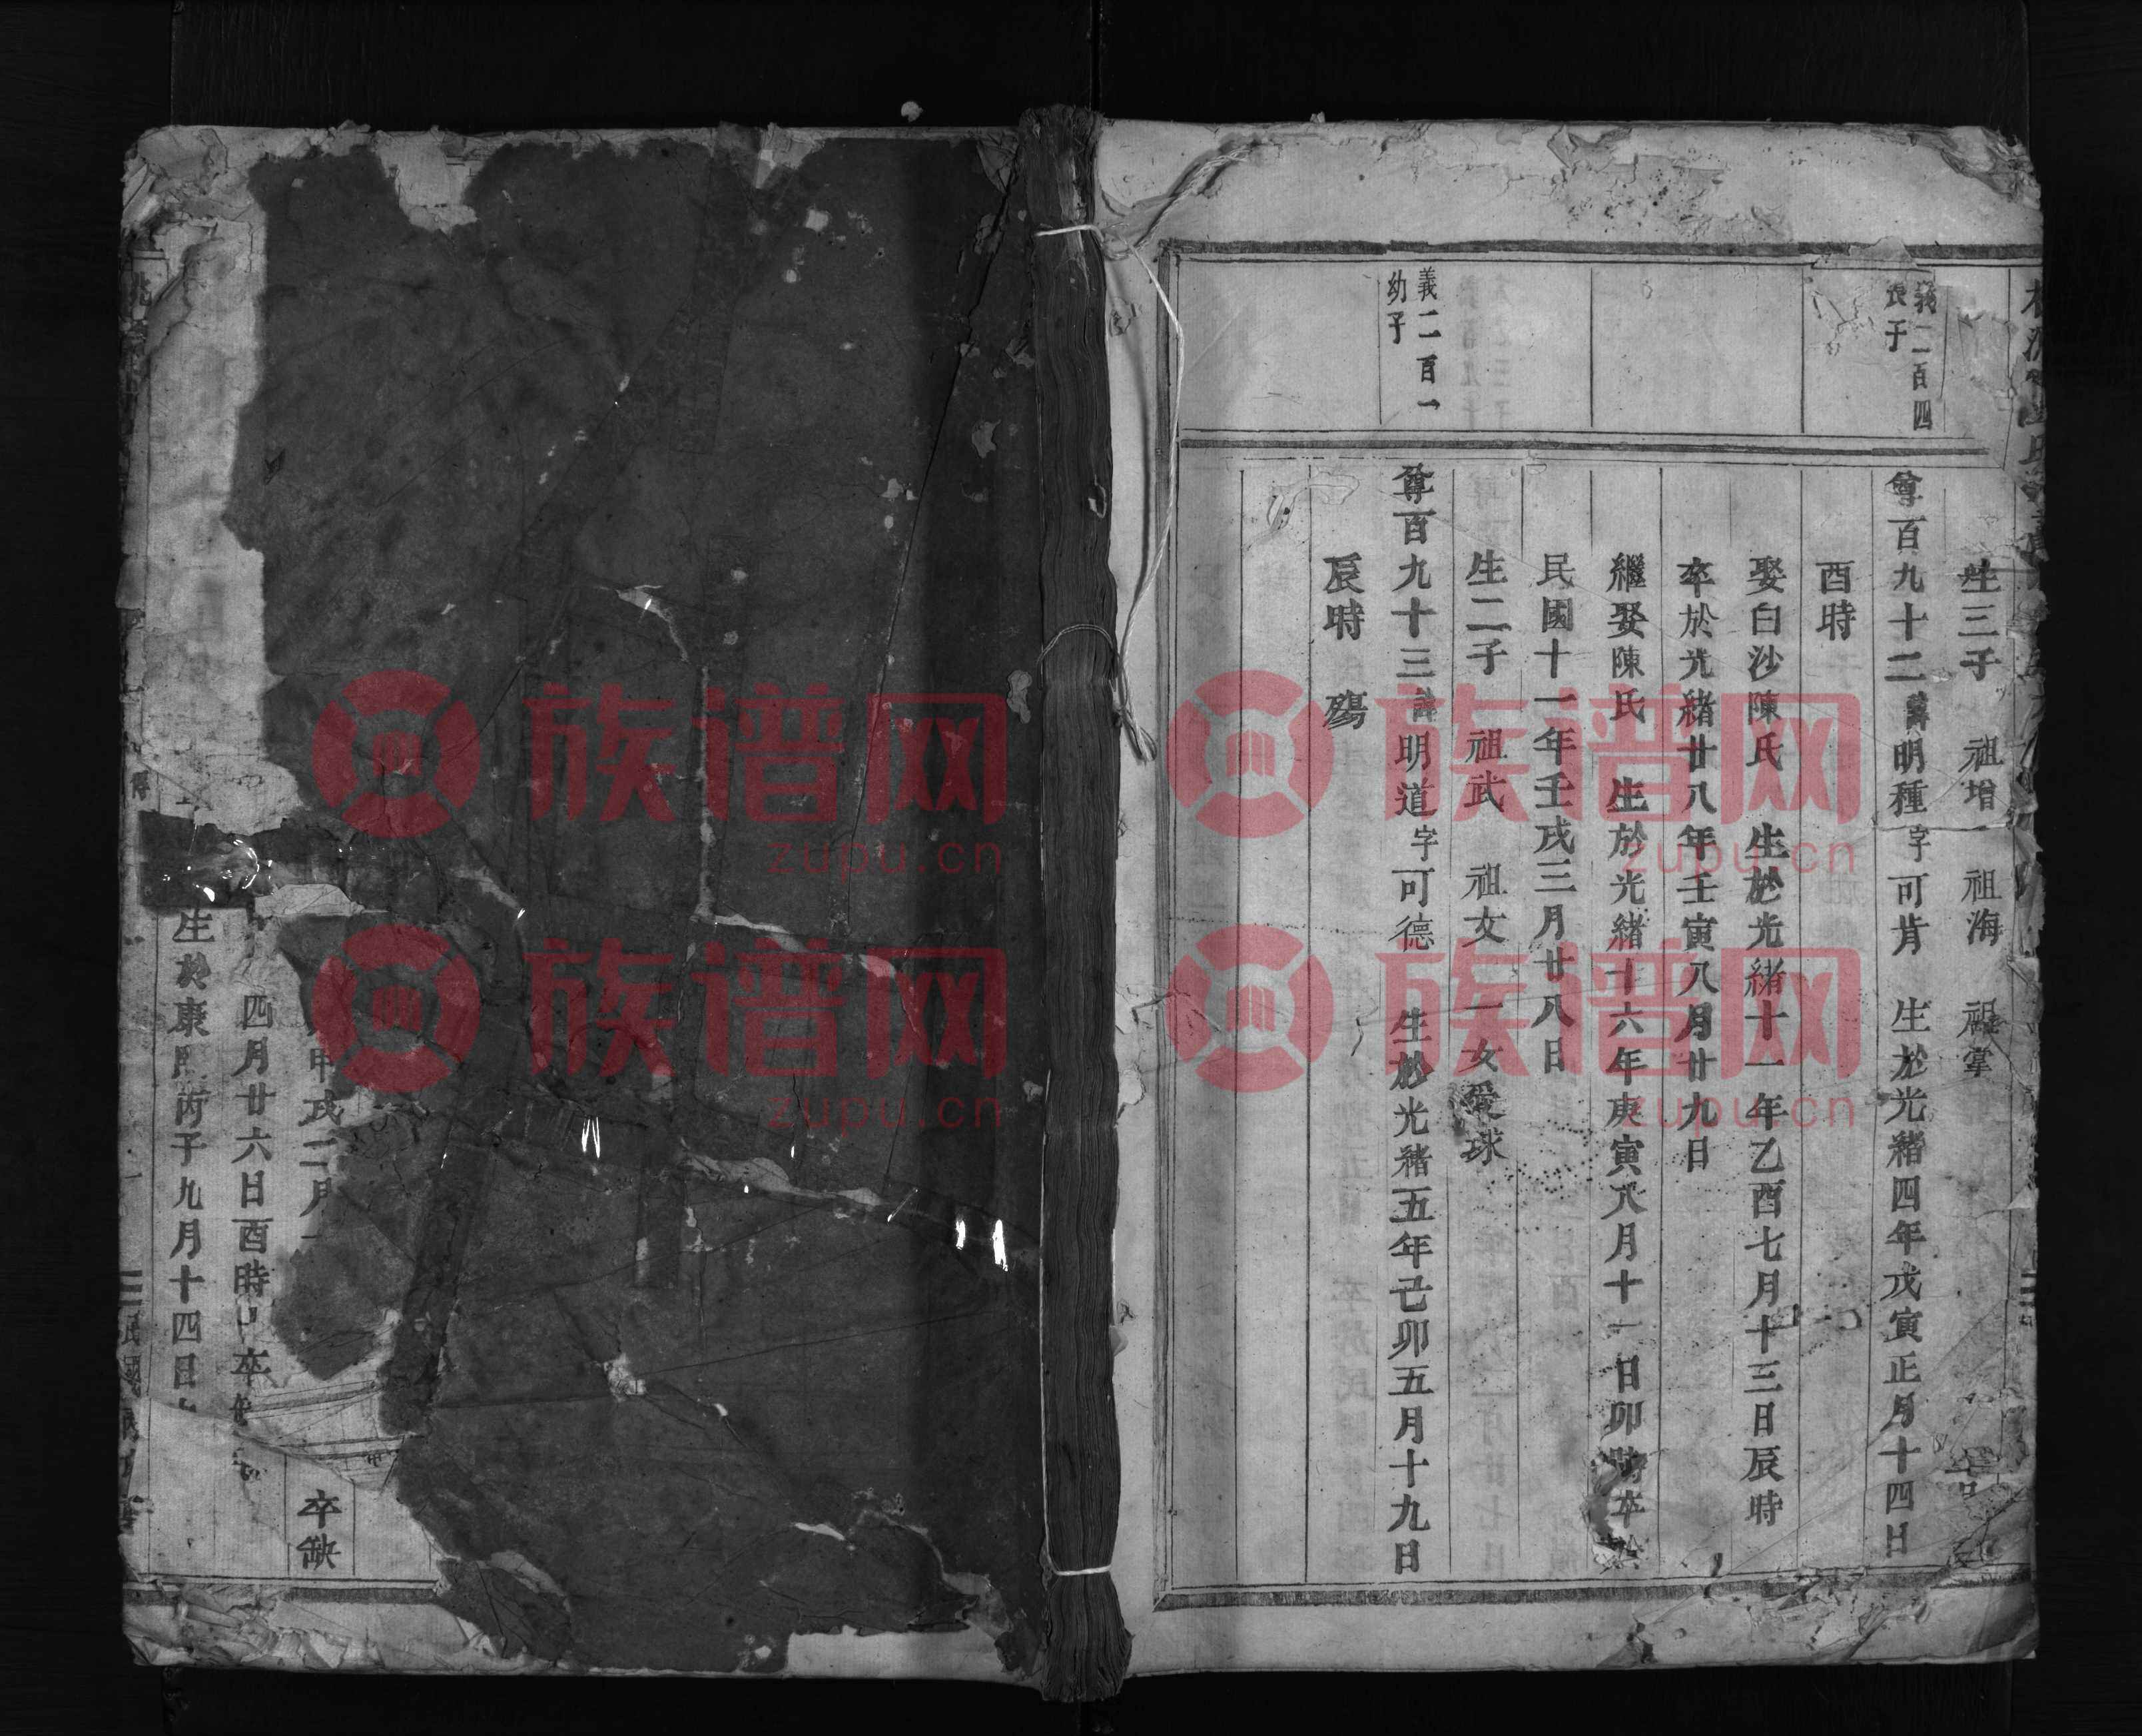 生三子　祖增　祖海　祖掌
義二百四
長子
尊百九十二諱明種字可肯　生於光緒四年戊寅正月十四日
酉時
娶白沙陳氏　生於光緒十一年乙酉七月十三日辰時
卒於光緒廿八年壬寅八月廿九日
繼娶陳氏　生於光緒十六年庚寅八月十一日卯時卒於
民國十一年壬戌三月廿八日
生二子　祖武　祖文　一女愛球
義二百一
幼子
尊百九十三諱明道字可德　生於光緒五年己卯五月十九日
辰時　殤
甲戌二月
卒缺
四月廿六日酉時 卒
生於康熙丙子九月十四日
民國
族谱网
zupu.cn
族谱网
zupu.cn
族谱网
zupu.cn
族谱网
zupu.cn